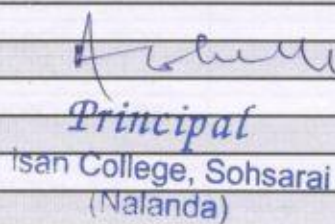 Principal
isan College, Sohsarai
(Nalanda)